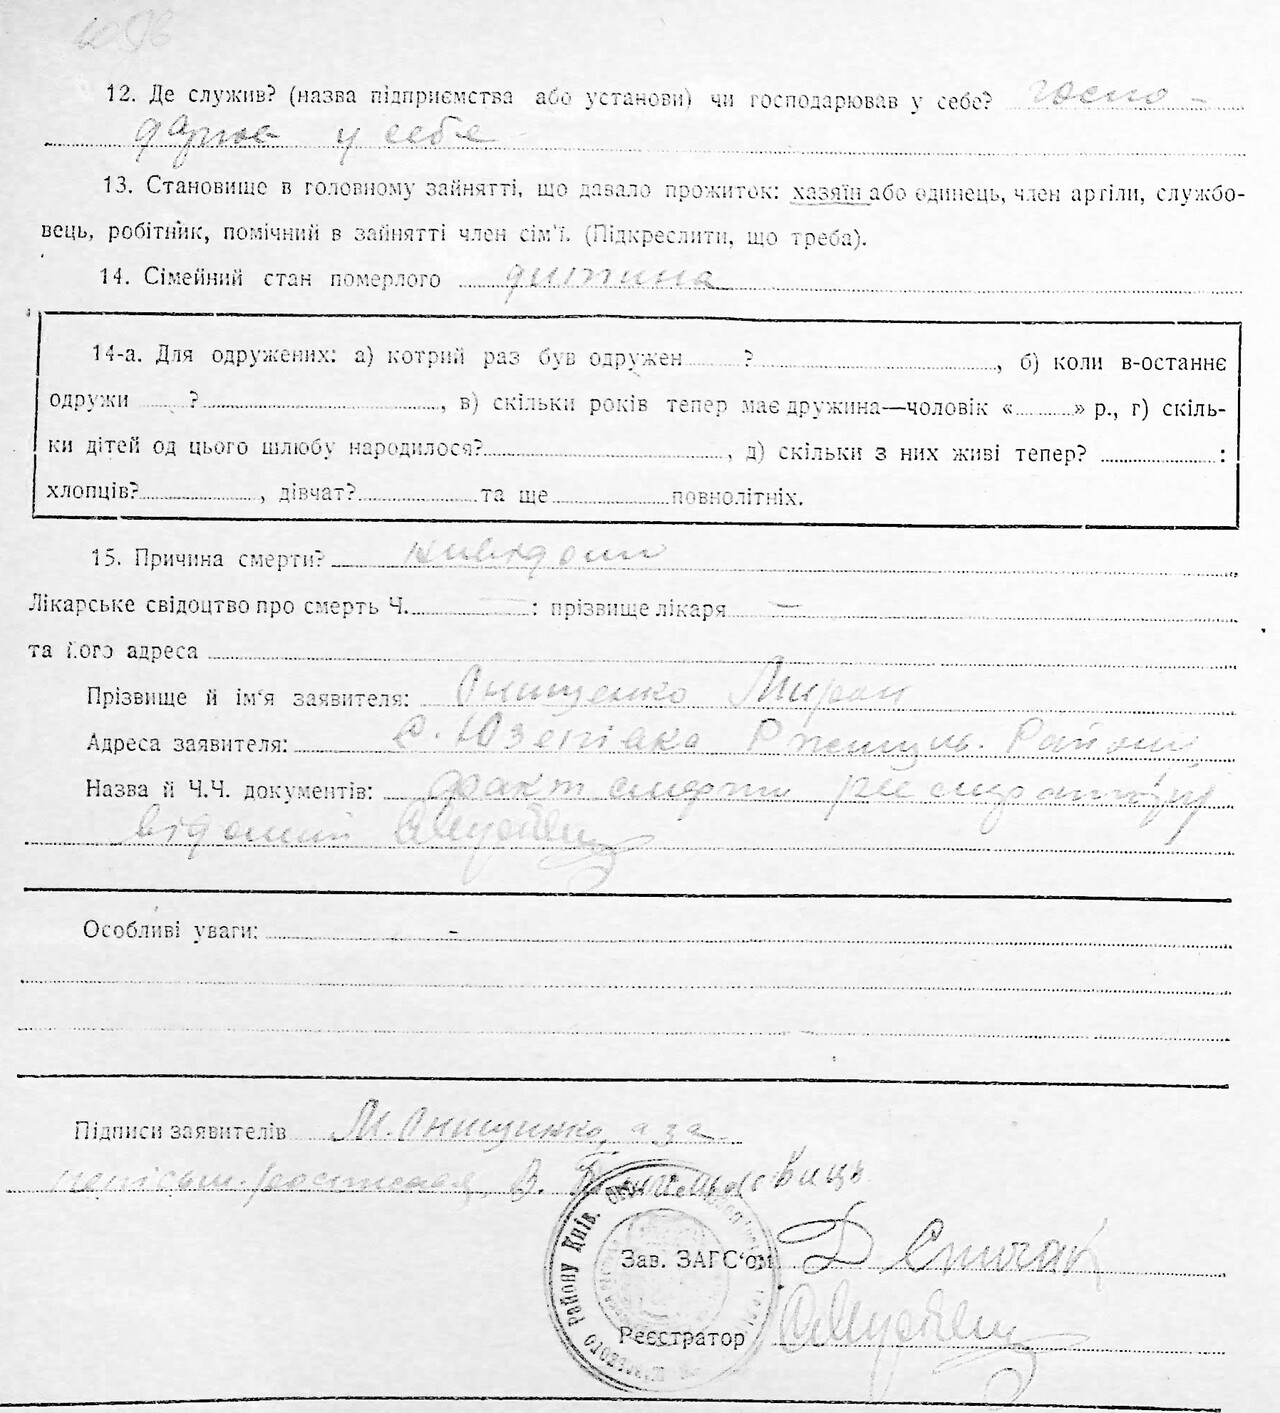 12. Де служив? (назва підприємства або установи) чи господарював у себе? госпо-
дарює у себе
13. Становище в головному зайнятті, що давало прожиток: хазяїн або одинець, член артіли, службо-
вець, робітник, помічний в зайнятті член сім'ї. (Підкреслити, що треба).
14. Сімейний стан померлого дитина
14-а. Для одружених: а) котрий раз був одружен ? , б) коли в-останнє
одружи ? , в) скільки років тепер має дружина—чоловік « » р., г) скіль-
ки дітей од цього шлюбу народилося? , д) скільки з них живі тепер? :
хлопців? , дівчат? та ще повнолітніх.
15. Причина смерти? невідом
Лікарське свідоцтво про смерть Ч. — : прізвище лікаря —
та його адреса
Прізвище й ім'я заявителя: Онищенко Мирон
Адреса заявителя: с. Юзепівка Ржищів. Району
Назва й Ч.Ч. документів: факт смерти реєстратору
відомий
Особливі уваги: -
Підписи заявителів М. Онищенко, а за
В.
Району Київ.
Зав. ЗАГС'ом
Реєстратор